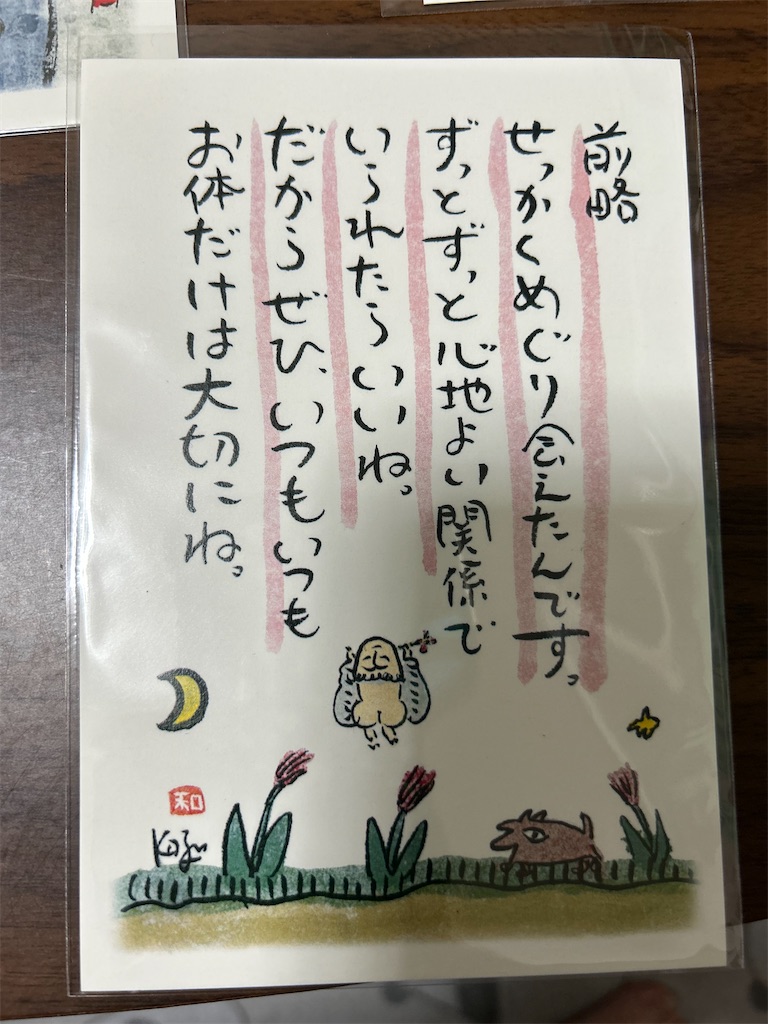 前略
せっかくめぐり会えたんです。
ずっとずっと心地よい関係で
いられたらいいね。
だからぜひ、いつもいつも
お体だけは大切にね。
和
Kazu